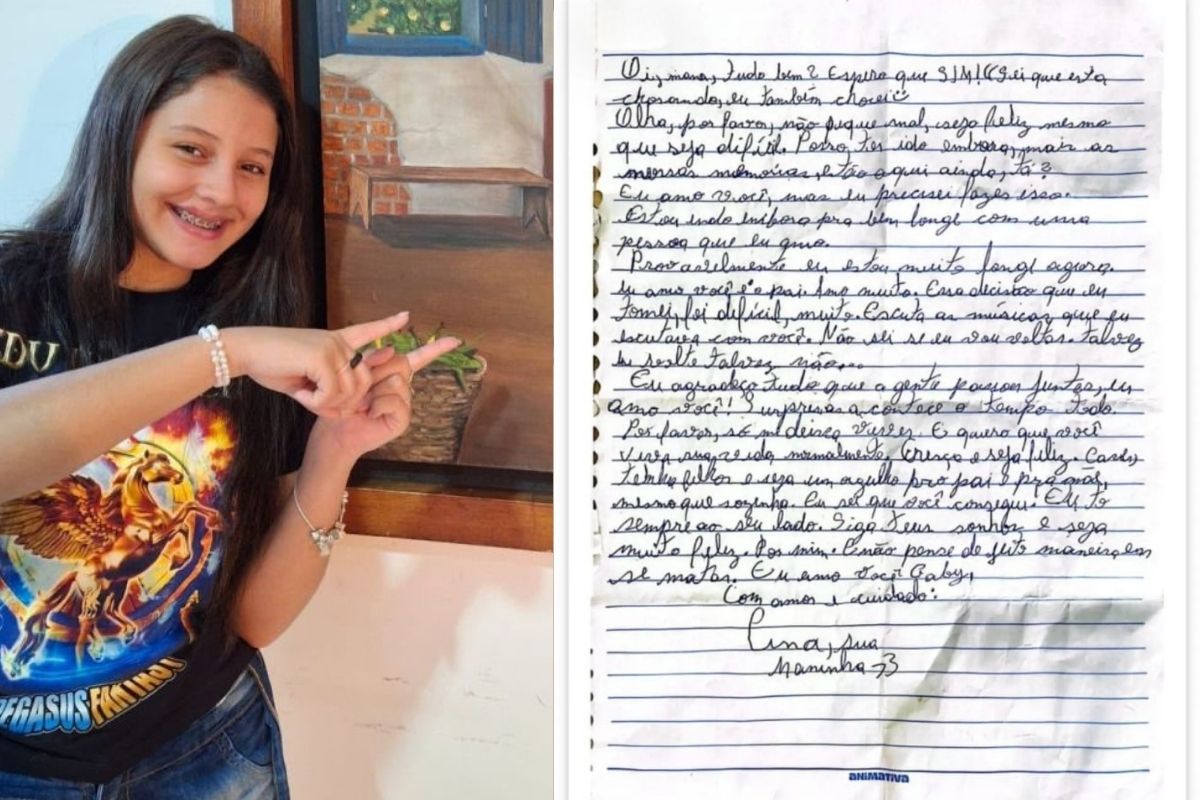 EDU
PEGASUS FANTASY
Oi, mana, tudo bem? Espero que SIM! (Sei que esta
chorando, eu também chorei
Olha, por favor, não fique mal, seja feliz mesmo
que seja difícil. Posso ter ido embora, mais as
nossas memórias estão aqui ainda, tá?
Eu amo você, mas eu precisei fazer isso.
Estou indo embora pra bem longe com uma
pessoa que eu amo.
Provavelmente eu estou muito longe agora.
Eu amo você e o pai. Amo muito. Essa decisão que eu
tomei, foi difícil, muito. Escuta as músicas que eu
escutava com você. Não sei se eu vou voltar. Talvez
eu volte talvez não...
Eu agradeço tudo que a gente passou juntas, eu
amo você! Surpresas acontece o tempo todo.
Por favor, só me deixa viver. E quero que você
viva sua vida normalmente. Cresça e seja feliz. Case,
tenha filhos e seja um orgulho pro pai e pra mãe,
mesmo que sozinha. Eu sei que você consegui. Eu to
sempre ao seu lado. Siga teus sonhos e seja
muito feliz. Por mim. E não pense de jeito maneira, em
se matar. Eu amo você Baby,
Com amor e cuidado:
sua
Maninha <3
ANIMATIVA